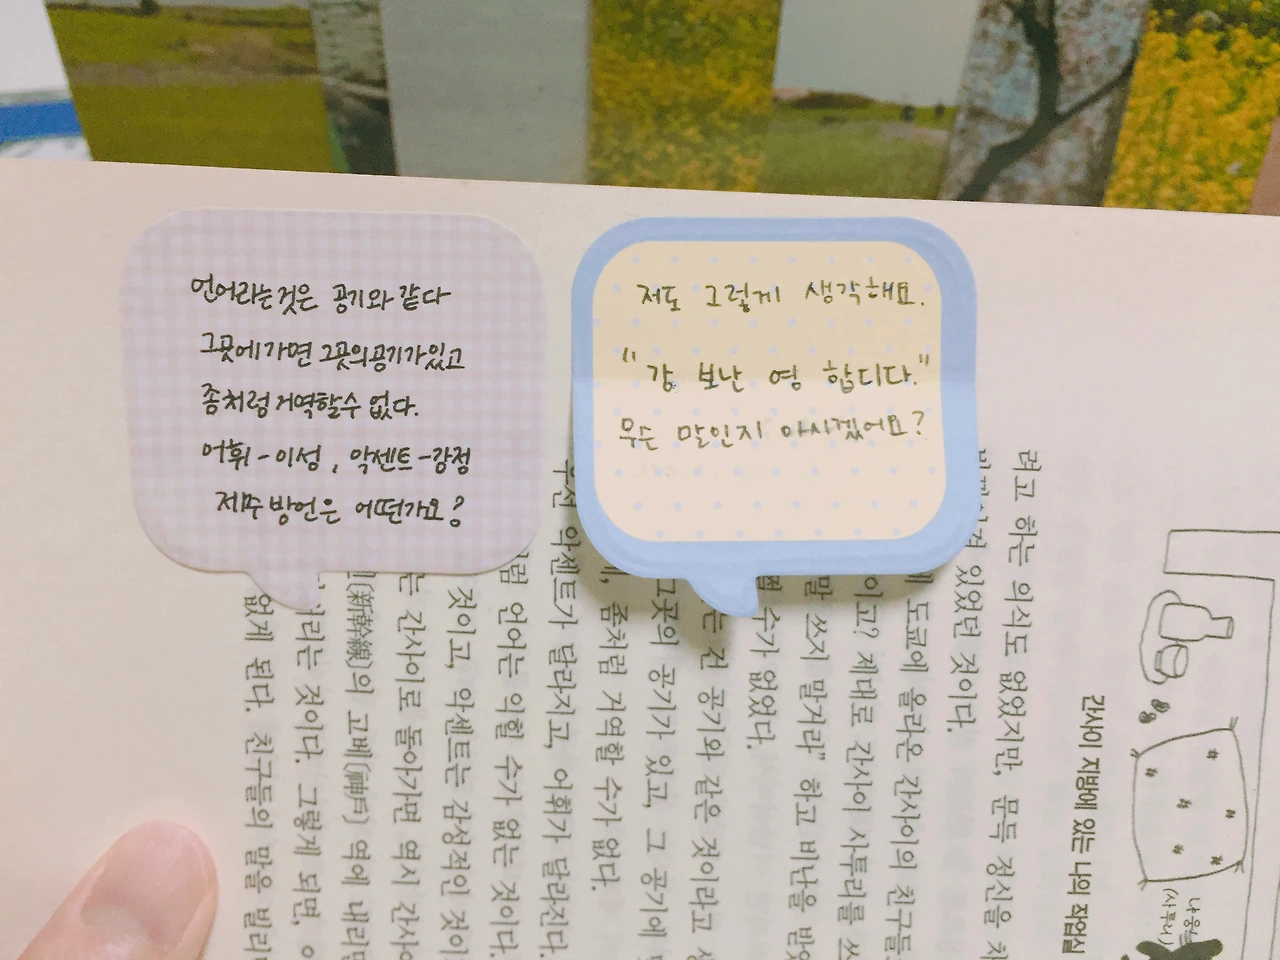 언어라는것은 공기와 같다
그곳에가면 그곳의공기가있고
좀처럼 거역할수 없다.
어휘-이성, 악센트-감정
제주 방언은 어떤가요?
저도 그렇게 생각해요.
"강 보난 영 헙디다."
무슨 말인지 아시겠어요?
간사이 지방에 있는 나의 작업실
려고 하는 의식도 없었지만, 문득 정신을 차
있었던 것이다.
도쿄에 올라온 간사이의 친구들
이고? 제대로 간사이 사투리를 쓰
말 쓰지 말거라" 하고 비난을 받았
수가 없었다.
건 공기와 같은 것이라고 생
그곳의 공기가 있고, 그 공기에
좀처럼 거역할 수가 없다.
우선 악센트가 달라지고, 어휘가 달라진다.
럼 언어는 익힐 수가 없는 것이다.
것이고, 악센트는 감성적인 것이
는 간사이로 돌아가면 역시 간사이
(新幹線)의 고베(神戶) 역에 내리면
버리는 것이다. 그렇게 되면,
없게 된다. 친구들의 말을 빌리
(사투리)